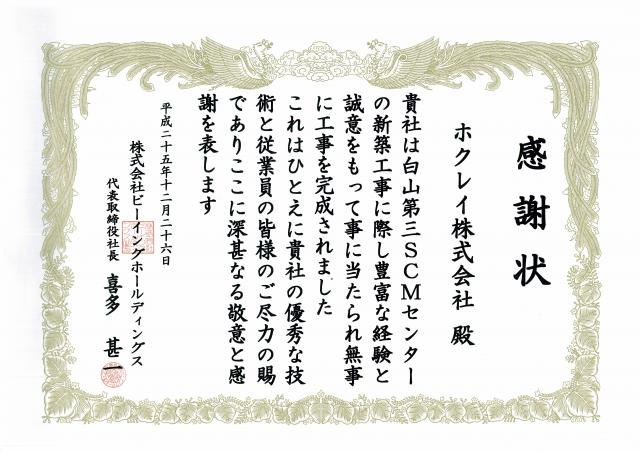 感謝状
ホクレイ株式会社 殿
貴社は白山第三SCMセンター
の新築工事に際し豊富な経験と
誠意をもって事に当たられ無事
に工事を完成されました
これはひとえに貴社の優秀な技
術と従業員の皆様のご尽力の賜
でありここに深甚なる敬意と感
謝を表します
平成二十五年十二月二十六日
株式会社ビーイングホールディングス
代表取締役社長 喜多 甚一